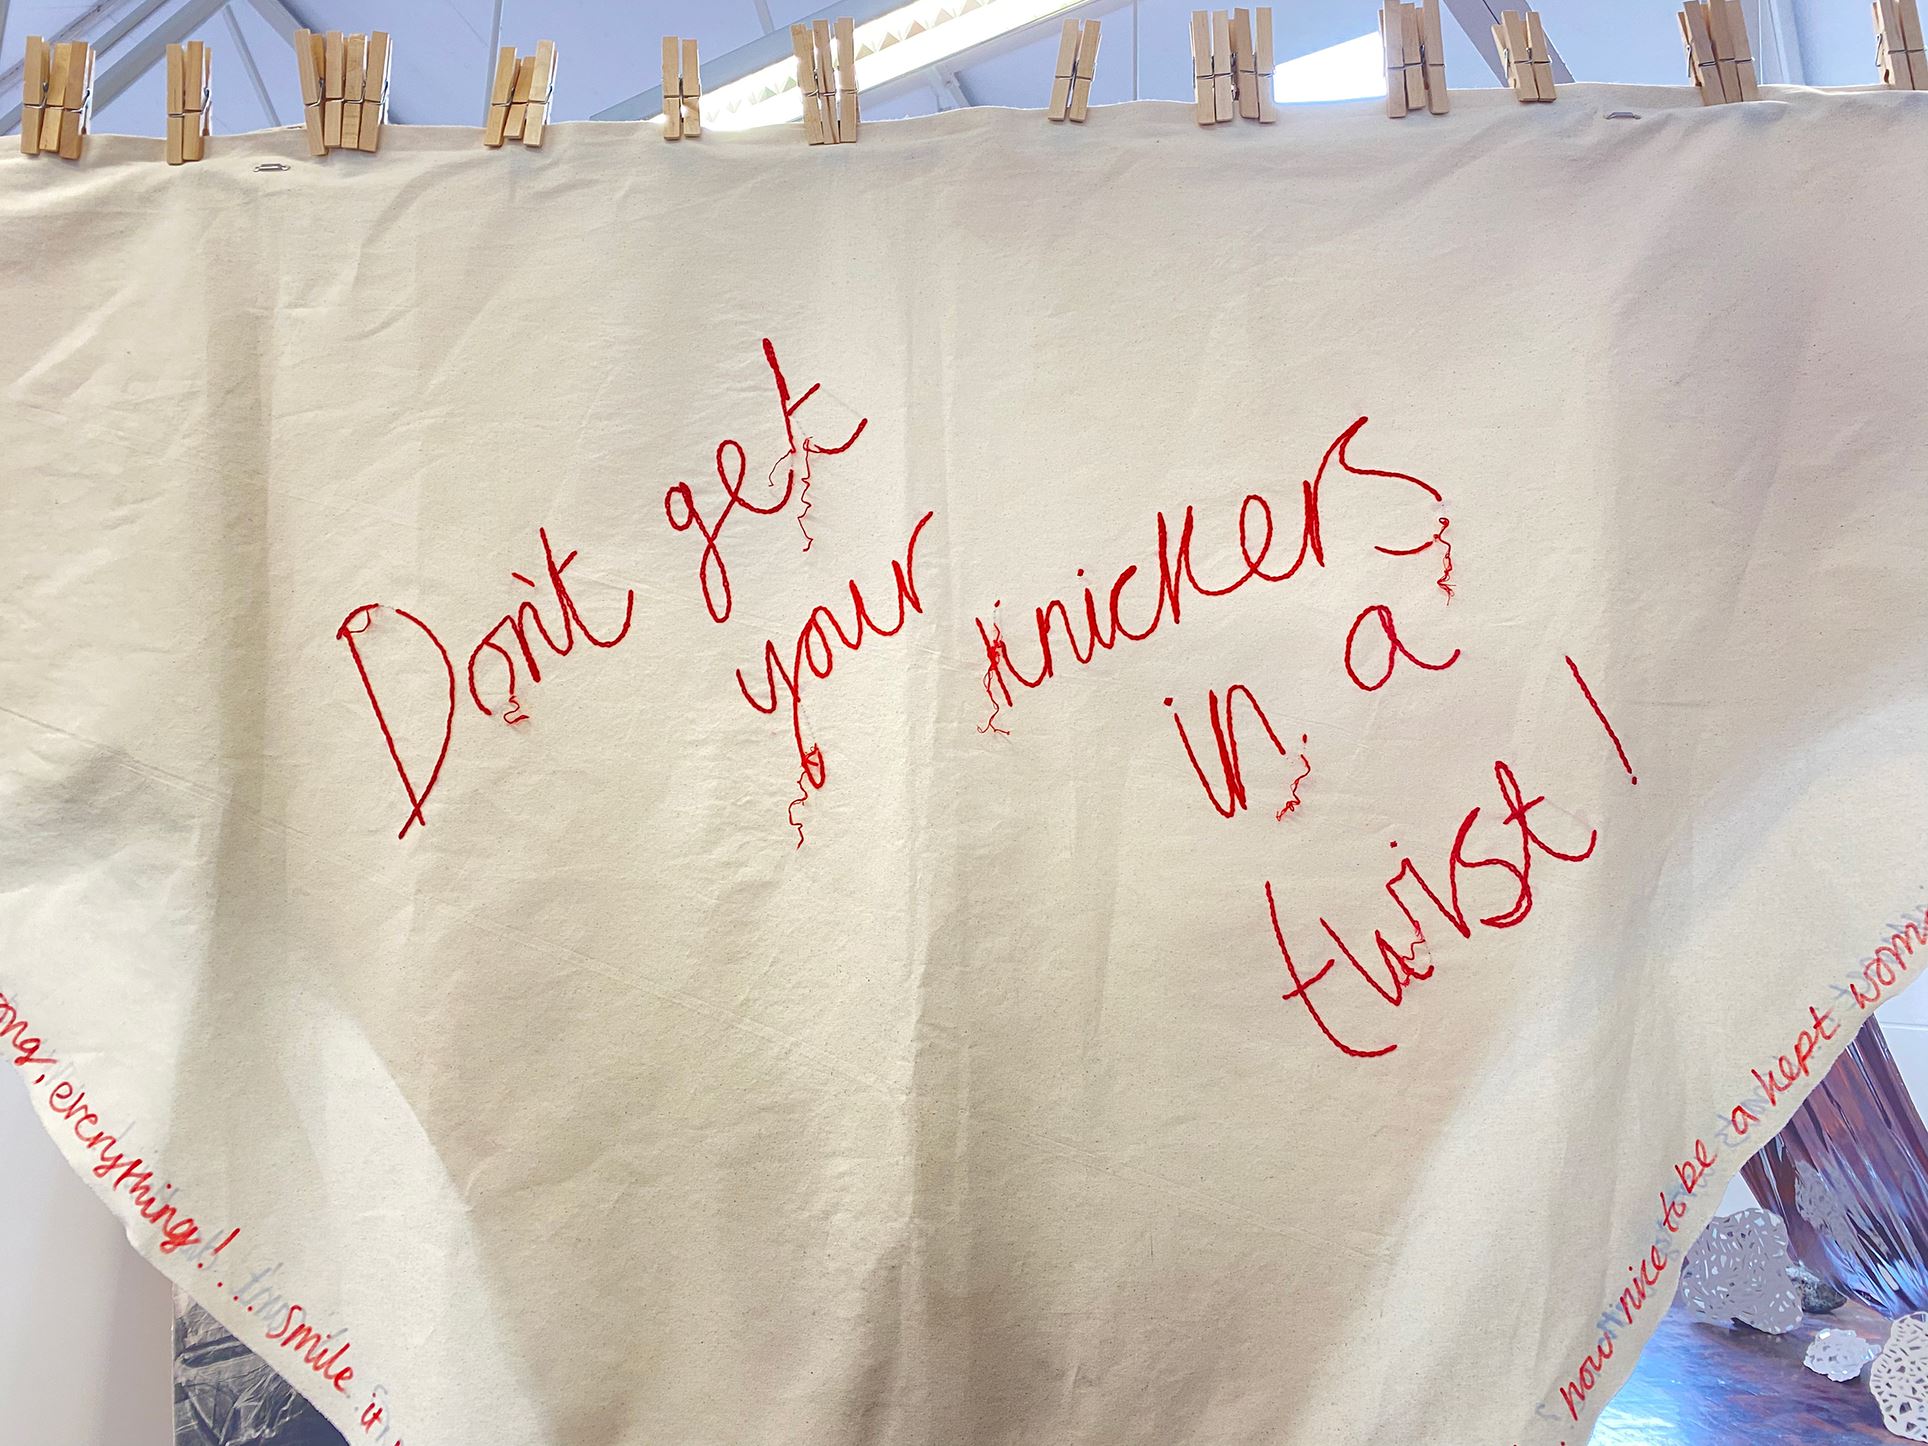 Don't get
your knickers
in a
twist!
everything! ... smile it
how nice to be a kept